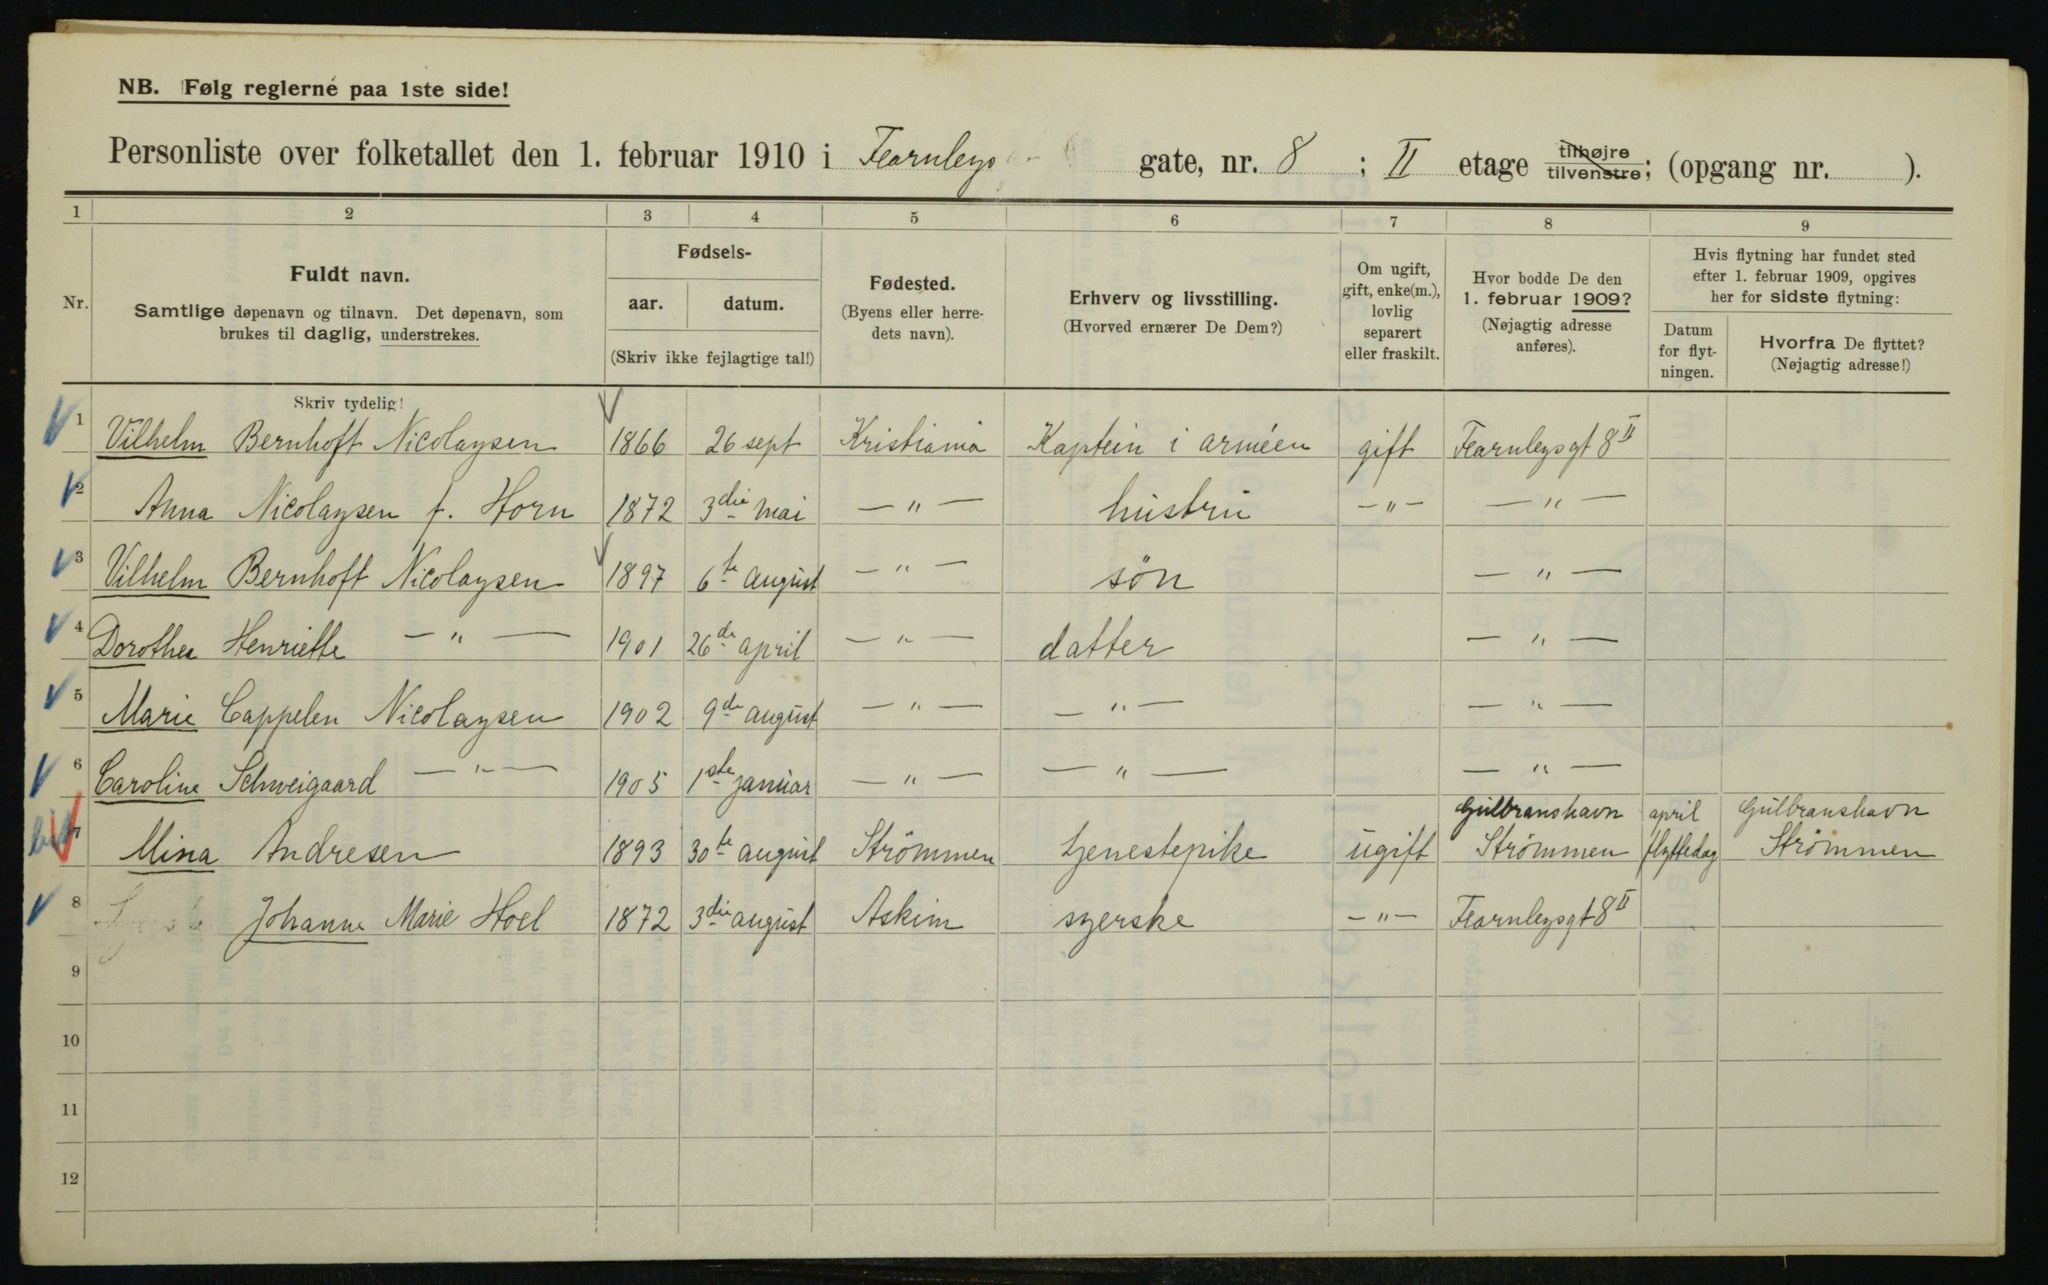 NB. Følg reglerne paa 1ste side!
Personliste over folketallet den 1. februar 1910 i Fearnleys gate, nr. 8 ; II etage tilhøjre tilvenstre; (opgang nr. ).
1 2 3 4 5 6 7 8 9
Nr.
Fuldt navn.
Samtlige døpenavn og tilnavn. Det døpenavn, som
brukes til daglig, understrekes.
Fødsels-
aar. datum.
(Skriv ikke fejlagtige tal!)
Fødested.
(Byens eller herre-
dets navn).
Erhverv og livsstilling.
(Hvorved ernærer De Dem?)
Om ugift,
gift, enke(m.),
lovlig
separert
eller fraskilt.
Hvor bodde De den
1. februar 1909?
(Nøjagtig adresse
anføres).
Hvis flytning har fundet sted
efter 1. februar 1909, opgives
her for sidste flytning:
Datum
for flyt-
ningen.
Hvorfra De flyttet?
(Nøjagtig adresse!)
Skriv tydelig!
1 Vilhelm Bernhoft Nicolaysen 1866 26 sept Kristiania Kaptein i arméen gift Fearnleysgt 8 II
2 Anna Nicolaysen f. Horn 1872 3die mai — " — hustru — " — — " —
3 Vilhelm Bernhoft Nicolaysen 1897 6te august — " — søn — " —
4 Dorothea Henriette — " — 1901 26de april — " — datter — " —
5 Marie Cappelen Nicolaysen 1902 9de august — " — — " — — " —
6 Caroline Schweigaard — " — 1905 1ste januar — " — — " — — " —
Gulbranshavn april Gulbranshavn
7 Mina Andresen 1893 30te august Strømmen tjenestepike ugift Strømmen flyttedag Strømmen
8 Johanne Marie Hoel 1872 3die august Askim syerske — " — Fearnleysgt 8 II
9
10
11
12